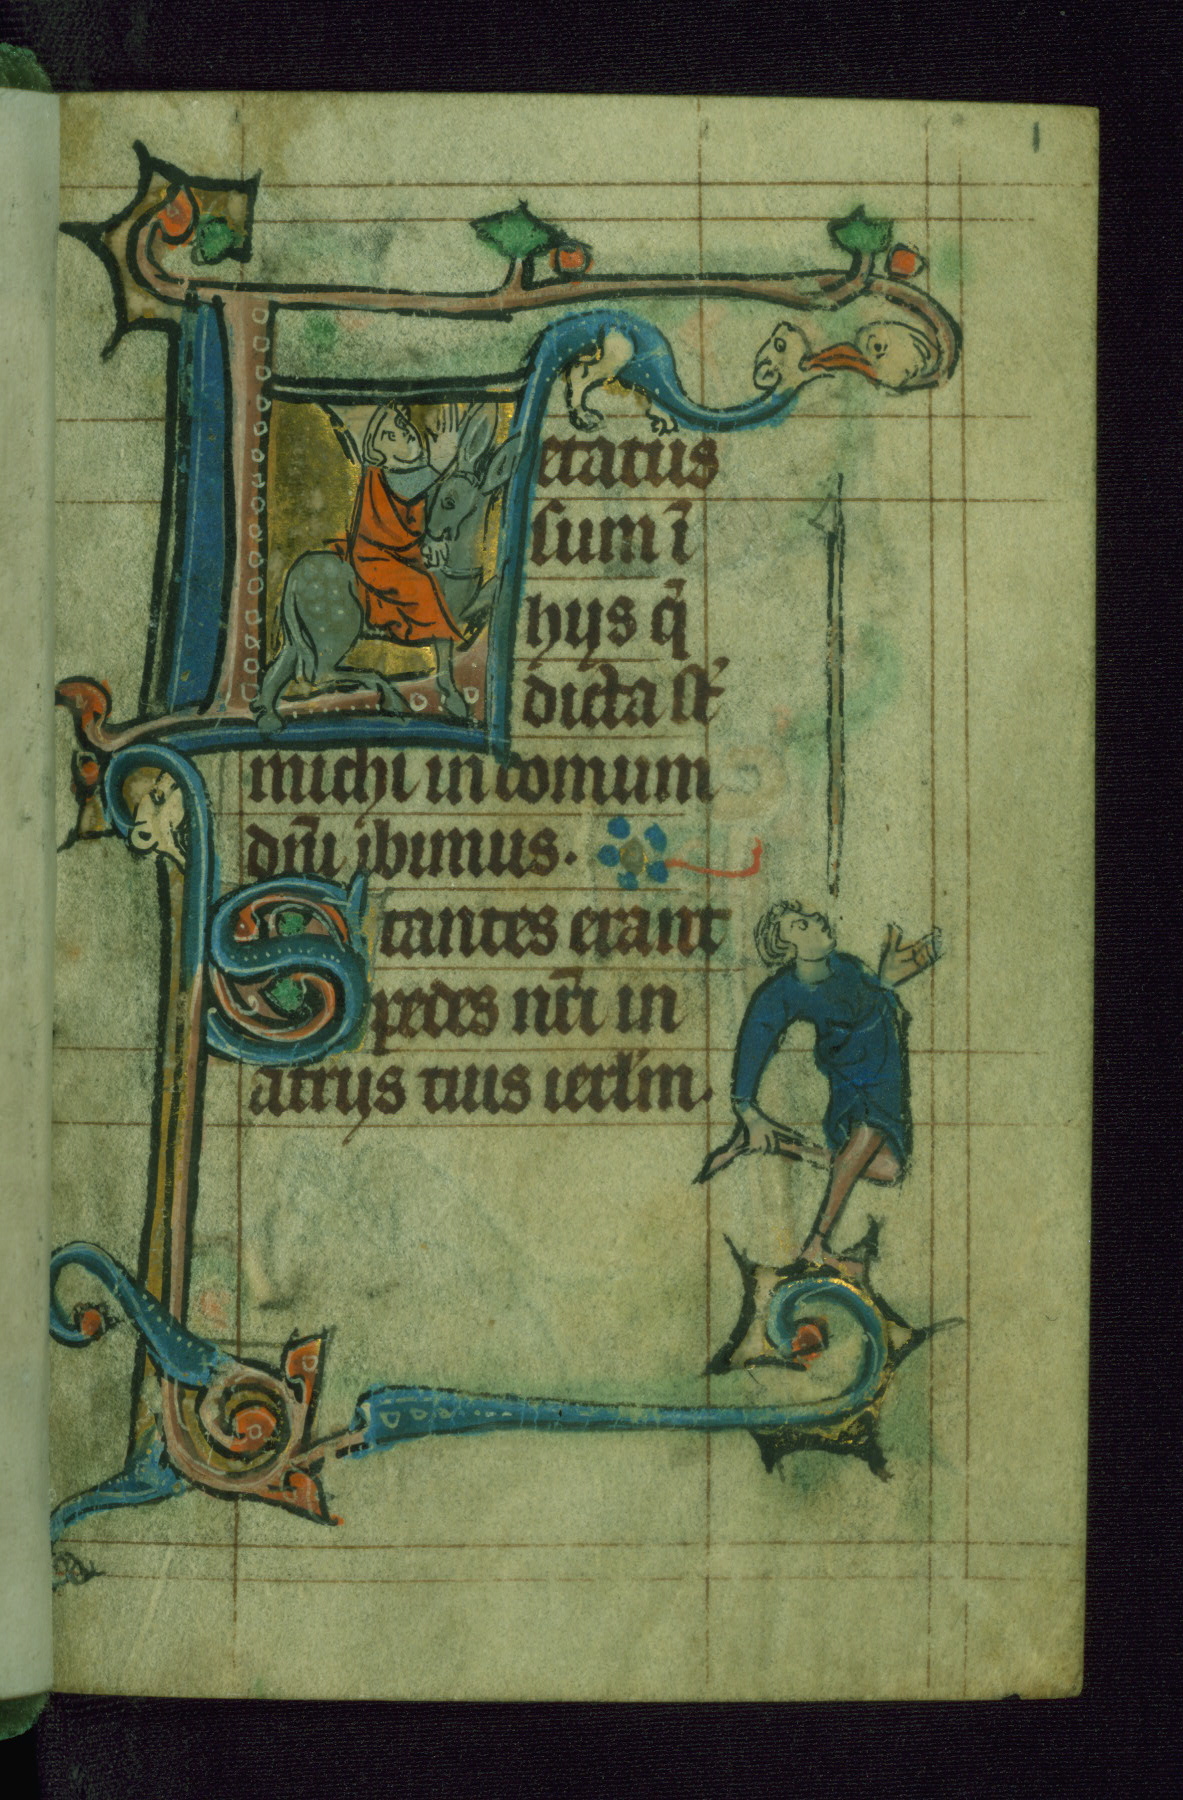 1
Letatus
sum ī
hijs q̄
dicta sūt
michi in domum
dn̄i ibimus.
Stantes erant
pedes nr̄i in
atrijs tuis ierl̄m.